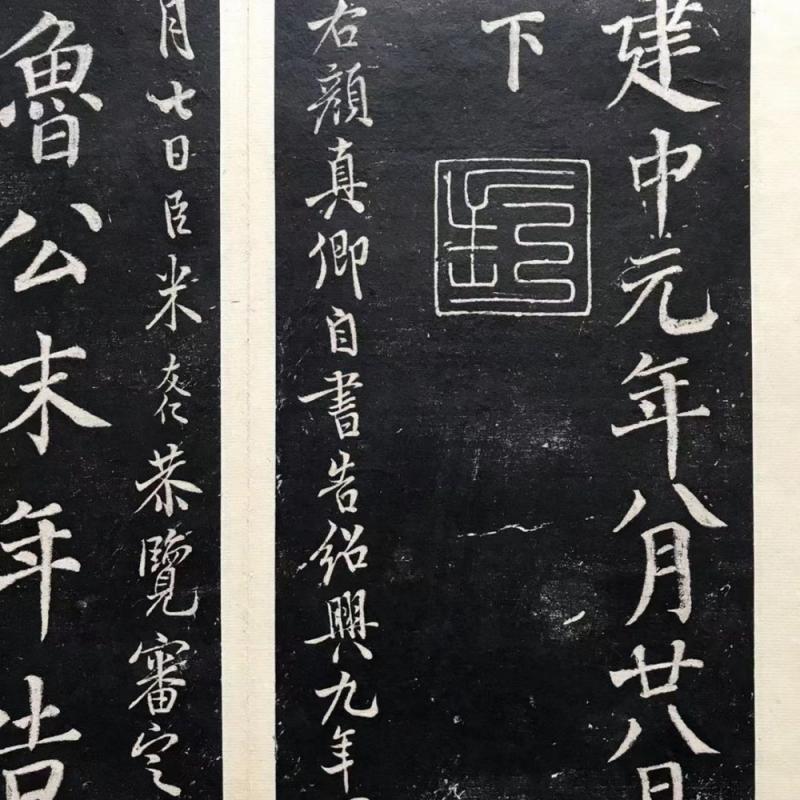 建中元年八月廿八日
下
右顏真卿自書告紹興九年
月七日臣米友仁恭覽審定
魯公末年告